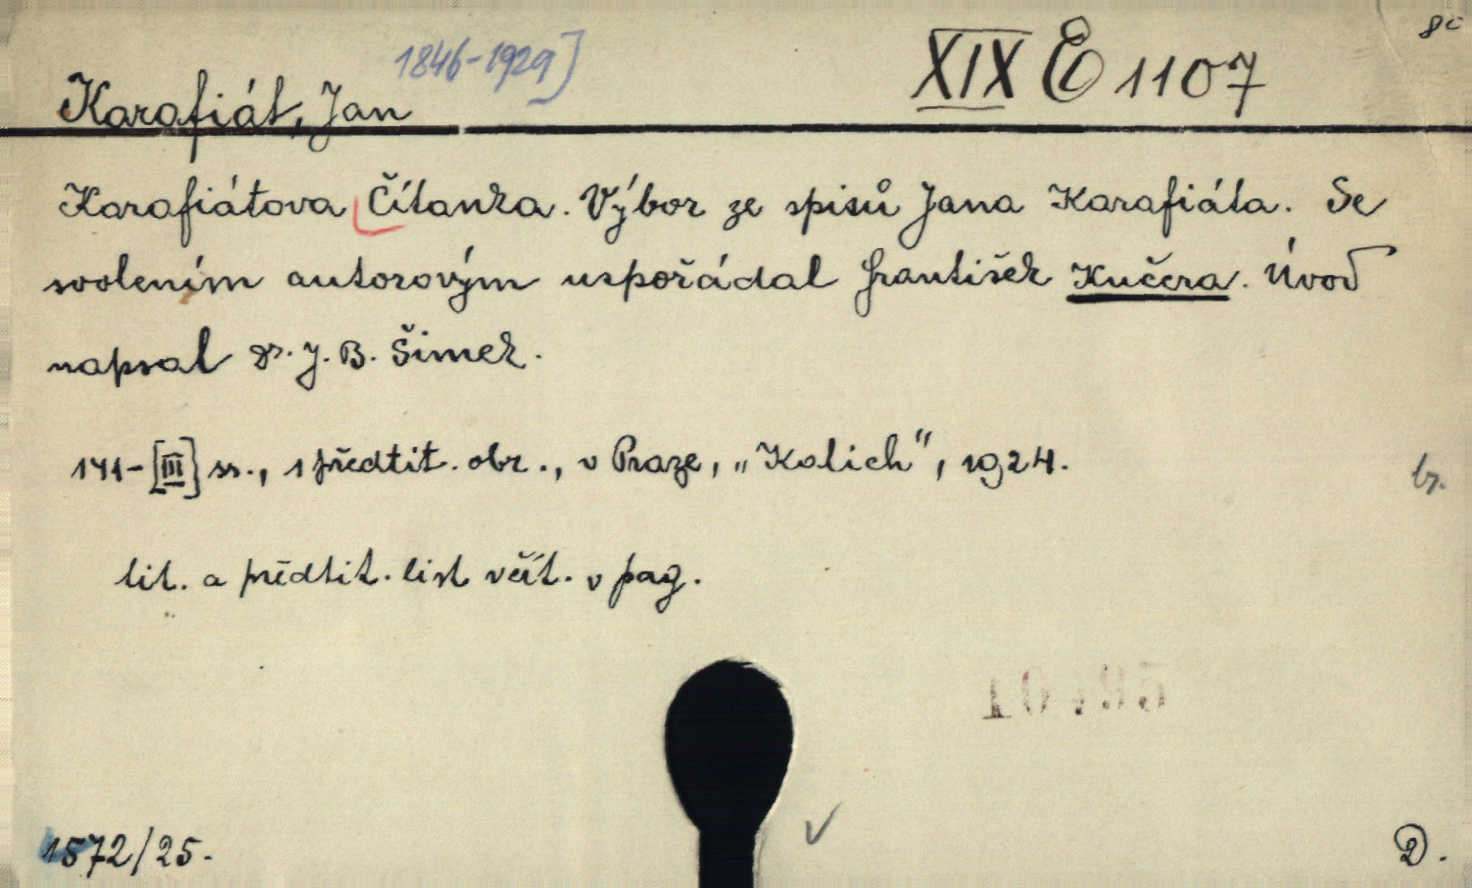 8°
1846-1929]
XIX E 1107
Karafiát, Jan
Karafiátova Čítanka. Výbor ze spisů Jana Karafiáta. Se
svolením autorovým uspořádal František Kučera. Úvod
napsal Dr. J. B. Šimek.
141-[III] ss., 1 předtit. obr., v Praze, „Kalich", 1924.
tit. a předtit. list včít. v pag.
1572/25.
D.